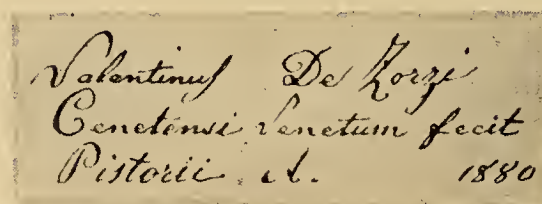 Valentinus De Zorzi
Cenetensi Venetum fecit
Pistorii A. 1880